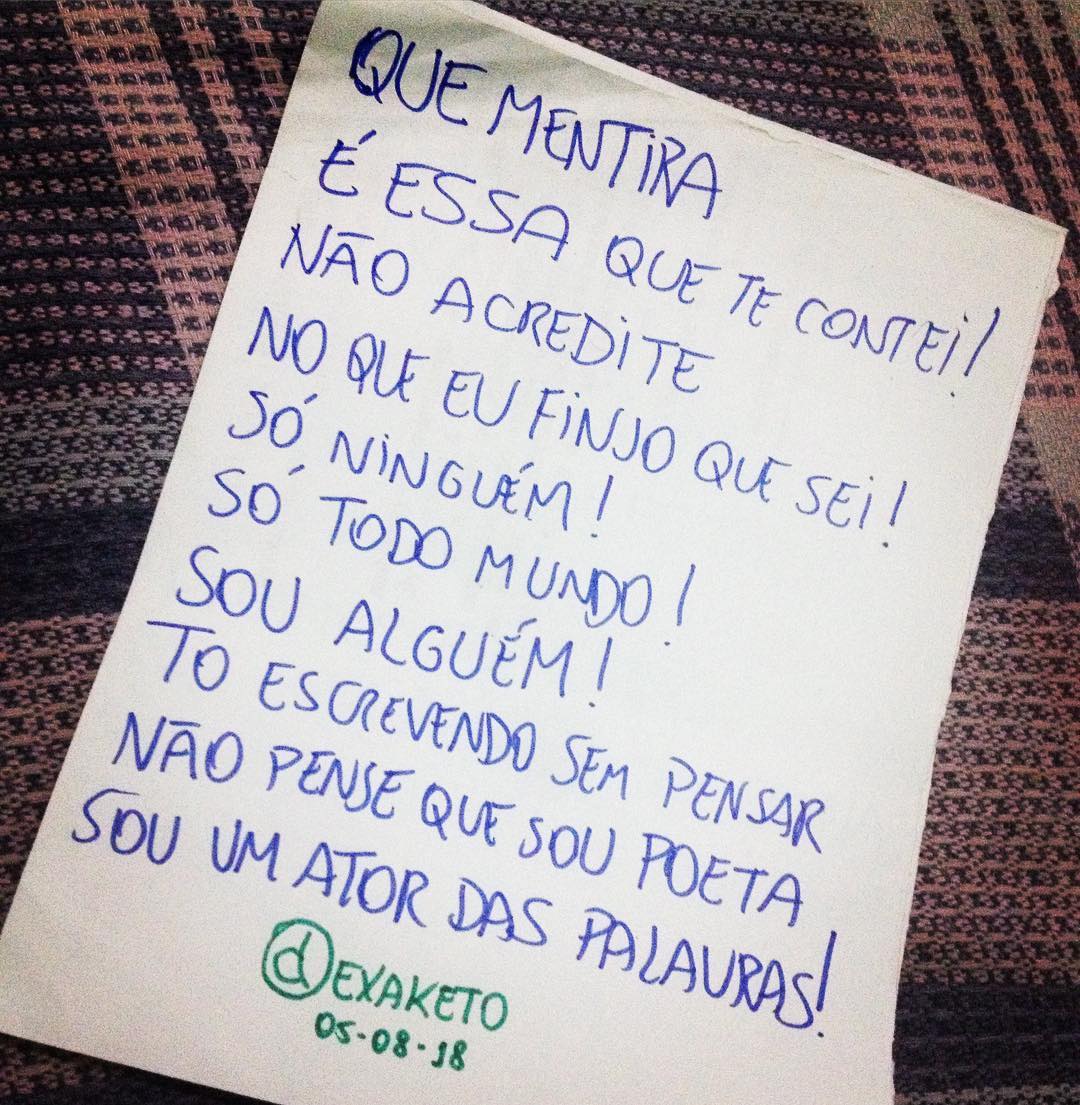 QUE MENTIRA
É ESSA QUE TE CONTEI!
NÃO ACREDITE
NO QUE EU FINJO QUE SEI!
SÓ NINGUÉM!
SÓ TODO MUNDO!
SOU ALGUÉM!
TO ESCREVENDO SEM PENSAR
NÃO PENSE QUE SOU POETA
SOU UM ATOR DAS PALAVRAS!
@DEXAKETO
05-08-18